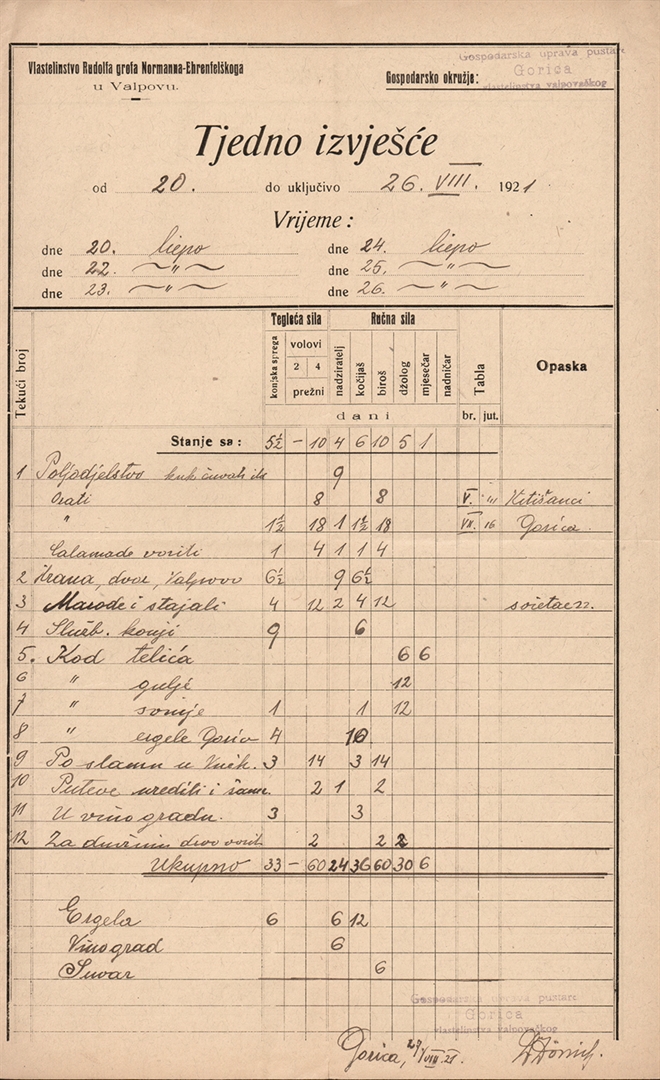 Vlastelinstvo Rudolfa grofa Normanna-Ehrenfelškoga
u Valpovu.
Gospodarsko okružje:
Gospodarska uprava pustare
Gorica
vlastelinstva valpovačkog
Tjedno izvješće
od 20. do uključivo 26. VIII. 1921
Vrijeme:
dne 20. liepo dne 24. liepo
dne 22. " dne 25. "
dne 23. " dne 26. "
Tekući broj
Tegleća sila Ručna sila
konjska sprega volovi 2 4 prežni nadziratelj kočijaš biroš džolog mjesečar nadničar Tabla Opaska
dani br. jut.
Stanje sa: 5½ – 10 4 6 10 5 1
1 Poljodjelstvo kuk čuvati 9
Orati 8 8 V.
" 1½ 18 1 1½ 18 VII. 16 Gorica
Calamade voziti 1 4 1 1 4
2 Hrana, dvor, Valpovo 6½ 9 6½
3 Marode i stajali 4 12 2 4 12
4 Služb. konji 9 6
5. Kod telića 6 6
6 " gulje 12
7 " svinje 1 1 12
8 " ergele Gorica 4 10
9 Po slamu u 3 14 3 14
10 Puteve urediti i 2 1 2
11 U vinogradu. 3 3
12 Za drvo vozit 2 2 2
Ukupno 33 – 60 24 36 60 30 6
Ergela 6 6 12
Vinograd 6
Suvar 6
Gospodarska uprava pustare
Gorica
vlastelinstva valpovačkog
Gorica, 27/VIII. 21.